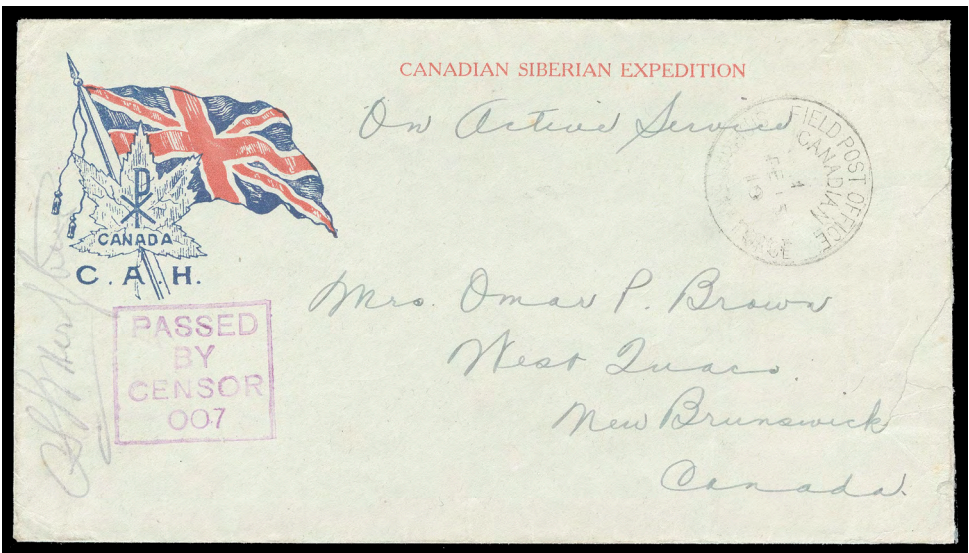 CANADIAN SIBERIAN EXPEDITION
On Active Service
FIELD POST OFFICE
CANADIAN
FORCE
CANADA
C. A. H.
PASSED
BY
CENSOR
007
Mrs. Omar P. Brown
West Quaco.
New Brunswick
Canada.